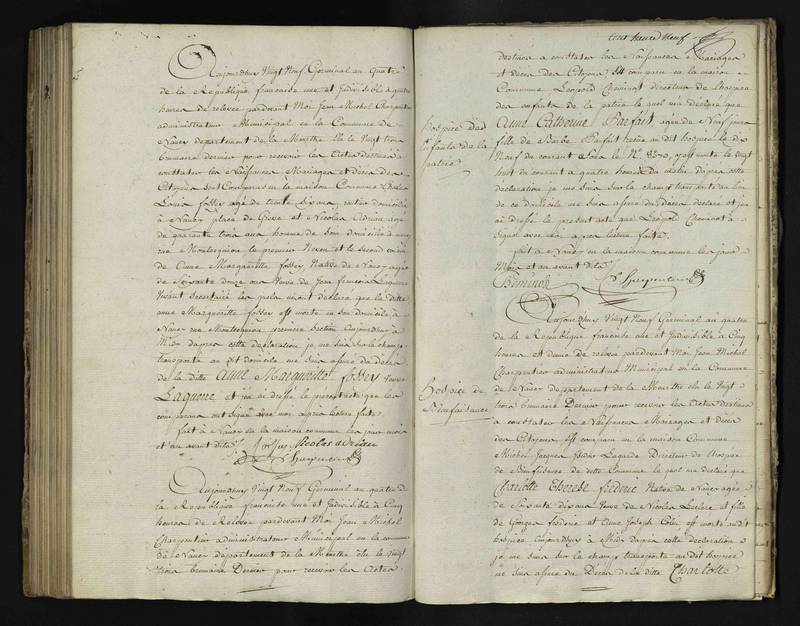 Aujourd'huy Vingt Neuf Germinal an quatre
de la République francaise une et Indivisible à quatre
heures de relevée pardevant Moi Jean Michel Charpentier
administrateur Municipal en la Commune de
Nancy departement de la Meurthe élu le Vingt trois
brumaire dernier pour recevoir les Actes destinés à
constater les Naissances Mariages et décés des
Citoyens sont comparus en la maison Commune Charles
Louis fossey agé de trente six ans, rentier domicilié
à Nancy place de Greve et Nicolas Adrian agé
de quarante trois ans homme de loi domicilié à Nancy
rue Montesquiou le premier Neveu et le second voisin
de Anne Margueritte fossey Native de Nancy agée
de soixante douze ans Veuve de Jean francois Laquerre
Vivant Secretaire les quels m'ont declaré que la ditte
anne Margueritte fossey est morte en son domicile à
Nancy rue Montesquiou premiere Section aujourd'huy à
Midy d'apres cette declaration je me suis sur le champ
transporté au dit domicile me suis assuré du décés
de la ditte Anne Margueritte fossey Veuve
Laquerre et j'en ai dressé le present acte que les
comparans ont signé avec moi apres lecture faite
fait à Nancy en la maison commune les jour mois
et an avant dits
Nicolas Adrian
Charpentier
Aujourd'huy Vingt Neuf Germinal an quatre de
la République francoise une et Indivisible à Cinq
heures de Relevée pardevant Moi Jean Michel
Charpentier administrateur Municipal en la commune
de Nancy département de la Meurthe élu le Vingt
trois brumaire Dernier pour recevoir les Actes
cent trente Neuf
destinés à constater les Naissances Mariages
et décés des Citoyens, Est comparu en la maison
Commune Léopold Cheminot directeur de l'hospice
des enfants de la patrie le quel m'a declaré que
Hospice des
Enfants de la
patrie
Anne Catherine Parfait agée de Neuf jours
fille de Barbe Parfait
Neuf du courant sous le N.° 8370, est morte le Vingt
huit du courant à quatre heures du matin d'apres cette
declaration je me suis sur le champ transporté au lieu
de ce domicile me suis assuré du Décés declaré et j'en
ai dressé le present acte que Léopold Cheminot a
signé avec moi apres lecture faite
fait à Nancy en la maison commune les jour
Mois et an avant dits
Cheminot
Charpentier
Aujourd'huy Vingt Neuf Germinal an quatre
de la République francoise une et Indivisible à Cinq
heures et demie de relevée pardevant Moi Jean Michel
Charpentier administrateur Municipal en la Commune
Hospice de
Bienfaisance
de Nancy departement de la Meurthe élu le Vingt
trois brumaire Dernier pour recevoir les Actes destinés
à constater les Naissances Mariages et décés
des Citoyens Est comparu en la maison Commune
Michel Jacques Isidor Lagarde Directeur de l'hospice
de Bienfaisance de cette Commune le quel m'a declaré que
Charlotte Therese frederic Native de Nancy agée
de soixante dix ans Veuve de Nicolas Leclerc et fille
de Georges frederic et Anne Joseph Colin est morte audit
hospice aujourd'huy à Midy d'apres cette declaration
je me suis sur le champ transporté au dit hospice
me suis assuré du Décés de la ditte Charlotte